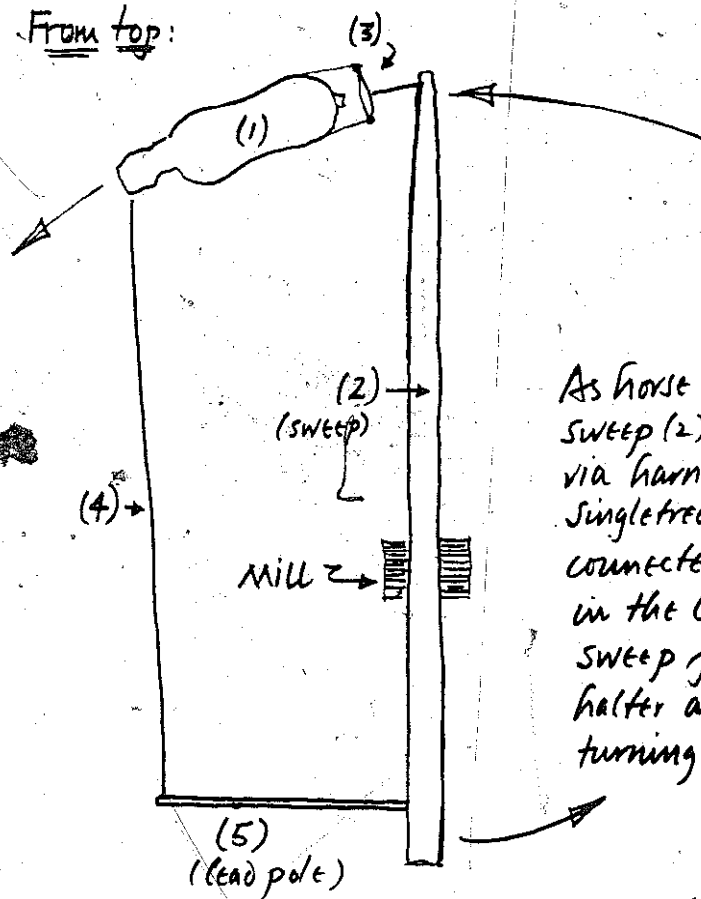 From top:
(3)
(1)
(2)
(sweep)
(4)
Mill
(5)
(lead pole)
As horse
sweep (2)
via harn
singletree
connecte
in the
sweep
halter a
turning